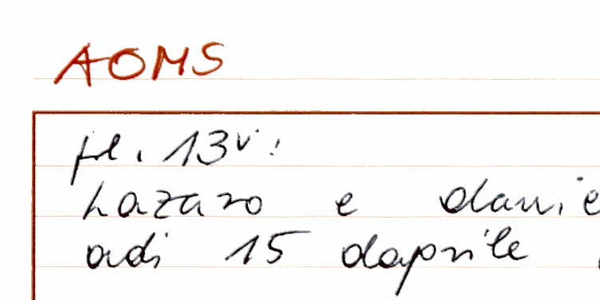 AOMS
fl. 13v:
Lazaro e danie
adi 15 daprile